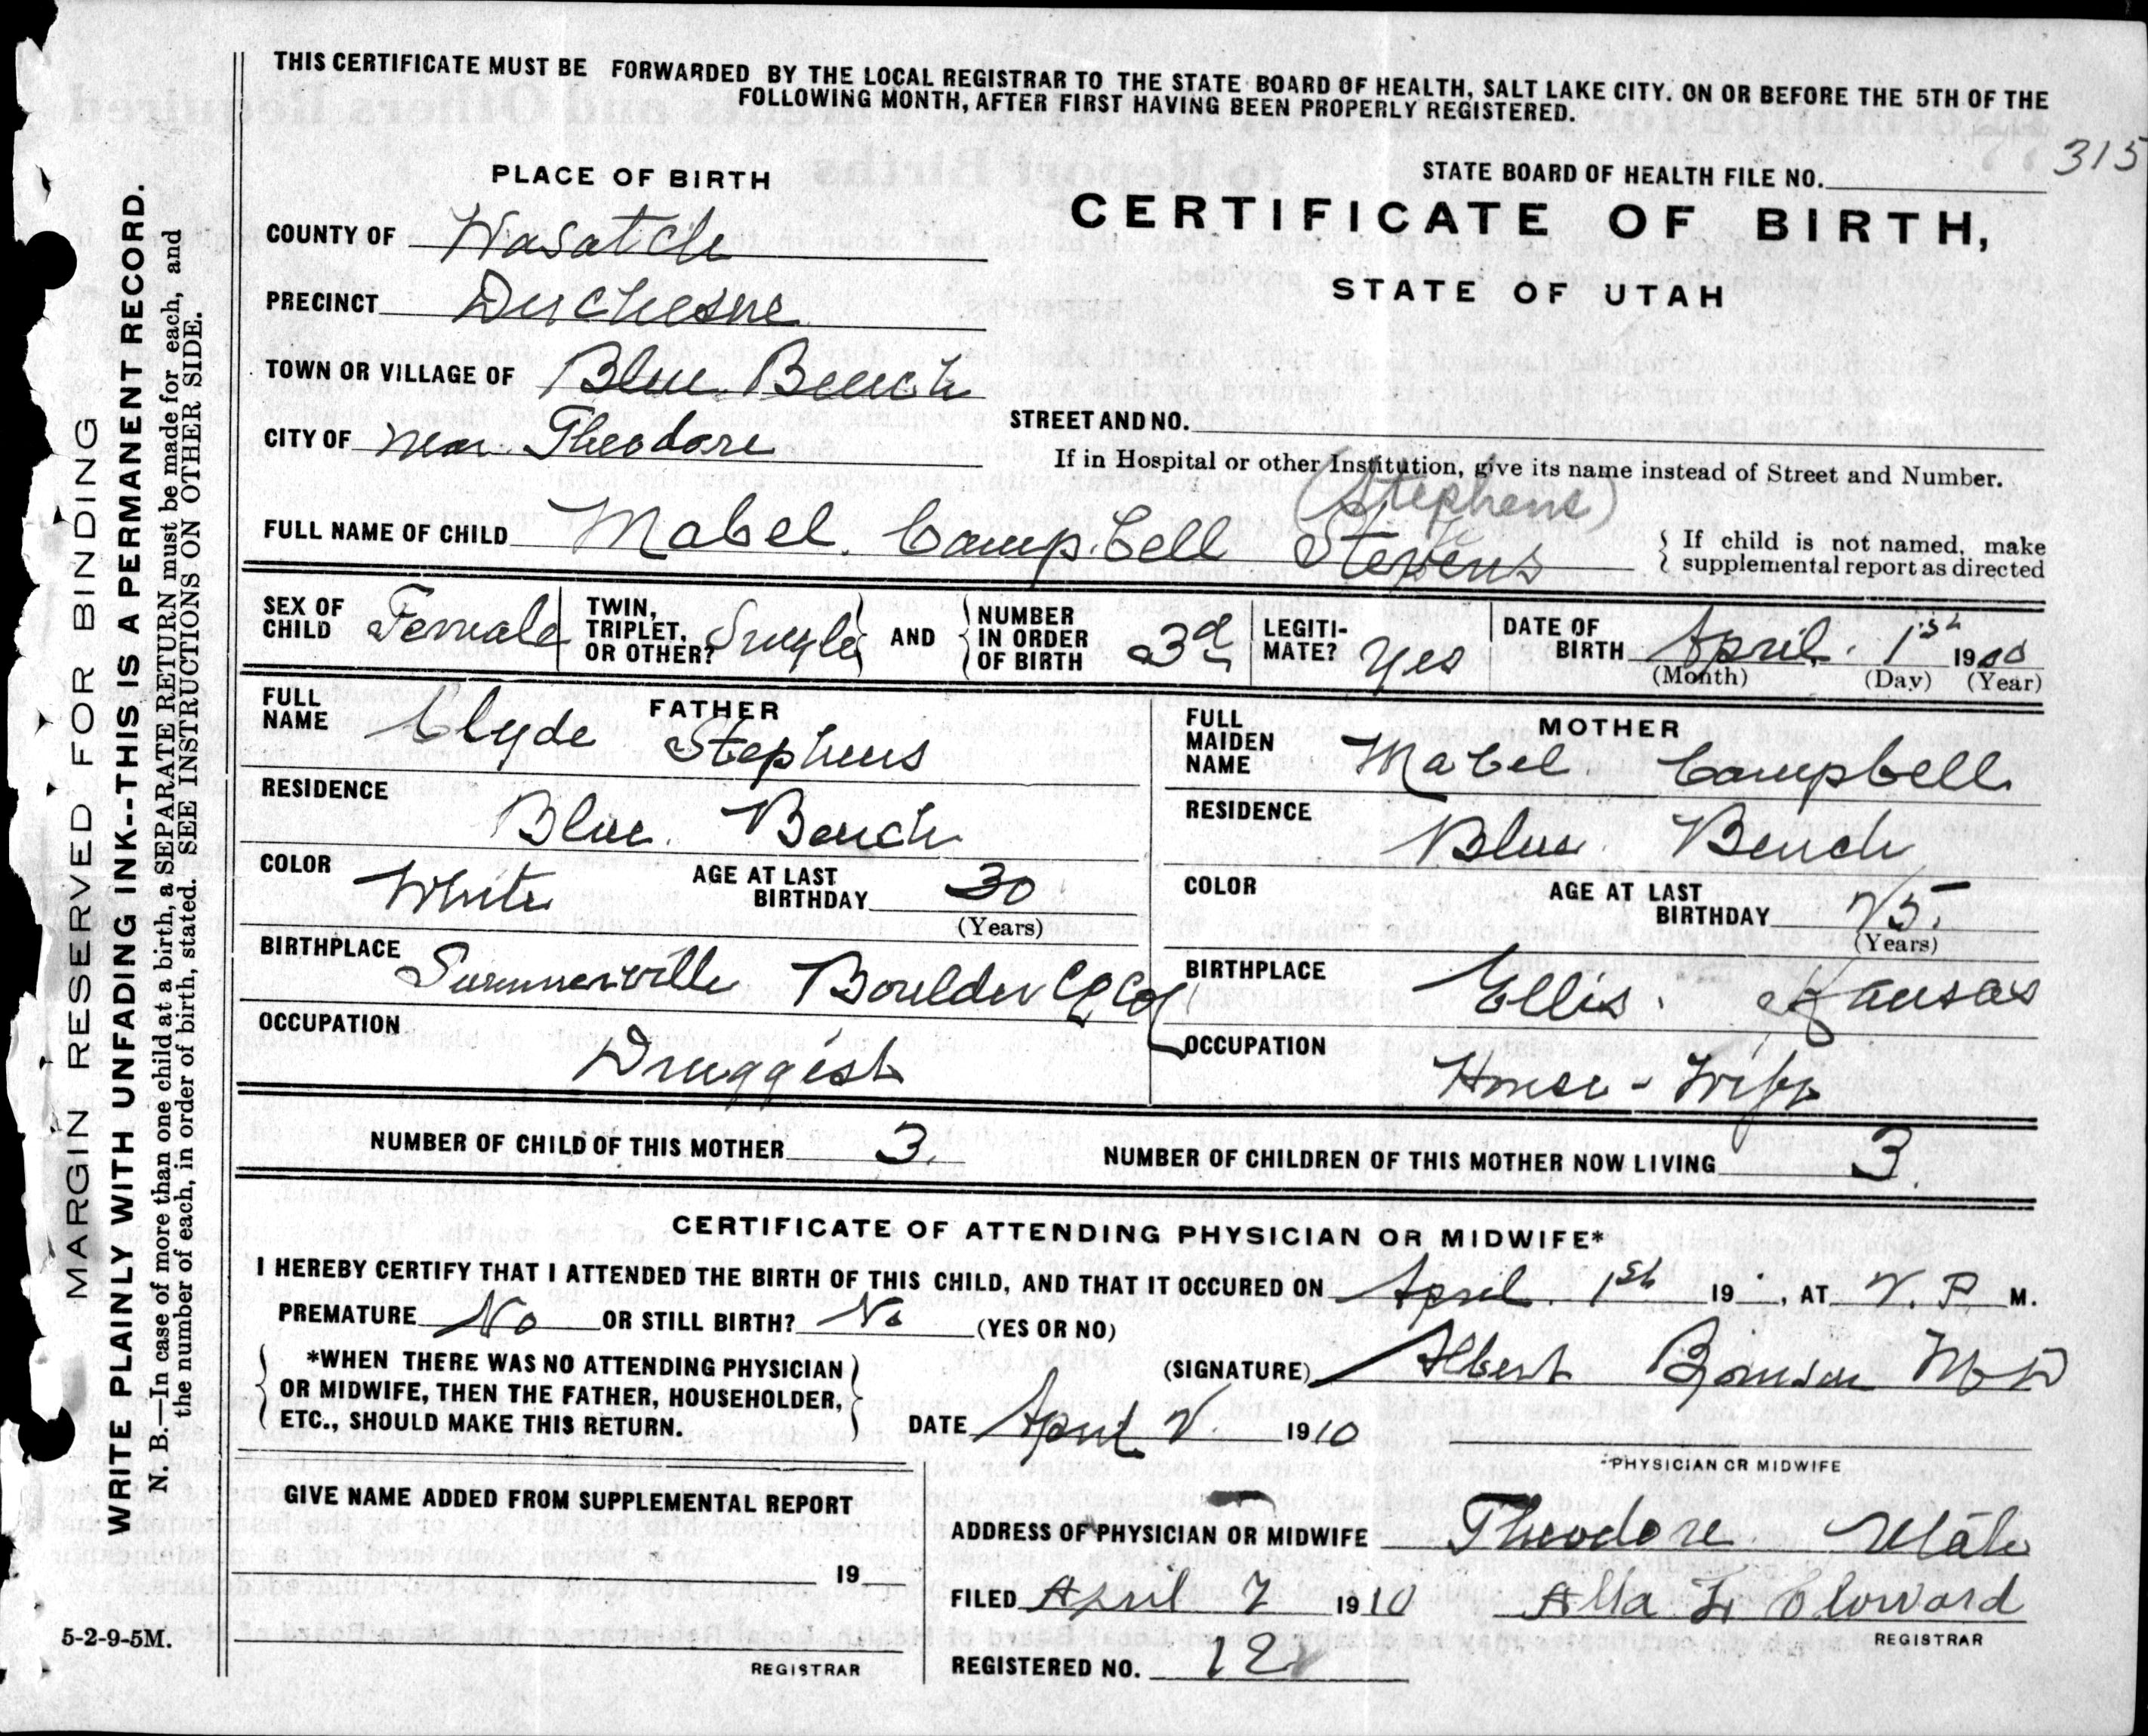 THIS CERTIFICATE MUST BE FORWARDED BY THE LOCAL REGISTRAR TO THE STATE BOARD OF HEALTH, SALT LAKE CITY, ON OR BEFORE THE 5TH OF THE
FOLLOWING MONTH, AFTER FIRST HAVING BEEN PROPERLY REGISTERED.
315
PLACE OF BIRTH
STATE BOARD OF HEALTH FILE NO.
CERTIFICATE OF BIRTH,
STATE OF UTAH
COUNTY OF Wasatch
PRECINCT Duchesne
TOWN OR VILLAGE OF Blue Bench
CITY OF near Theodore
STREET AND NO.
If in Hospital or other Institution, give its name instead of Street and Number.
(Stephens)
FULL NAME OF CHILD Mabel Campbell Stevens
{ If child is not named, make
supplemental report as directed
SEX OF CHILD Female
TWIN, TRIPLET, OR OTHER? Single
AND
NUMBER IN ORDER OF BIRTH 3d
LEGITI-MATE? Yes
DATE OF BIRTH April 1st 19
(Month) (Day) (Year)
FATHER
FULL NAME Clyde Stephens
RESIDENCE
Blue Bench
COLOR White
AGE AT LAST BIRTHDAY 30
(Years)
BIRTHPLACE
Summerville Boulder Co Col
OCCUPATION
Druggist
MOTHER
FULL MAIDEN NAME Mabel Campbell
RESIDENCE
Blue Bench
COLOR
AGE AT LAST BIRTHDAY 25.
(Years)
BIRTHPLACE Ellis. Kansas
OCCUPATION
House-Wife
NUMBER OF CHILD OF THIS MOTHER 3.
NUMBER OF CHILDREN OF THIS MOTHER NOW LIVING 3
CERTIFICATE OF ATTENDING PHYSICIAN OR MIDWIFE*
I HEREBY CERTIFY THAT I ATTENDED THE BIRTH OF THIS CHILD, AND THAT IT OCCURED ON April 1st 19 , AT 2. P M.
PREMATURE No OR STILL BIRTH? No (YES OR NO)
*WHEN THERE WAS NO ATTENDING PHYSICIAN
OR MIDWIFE, THEN THE FATHER, HOUSEHOLDER,
ETC., SHOULD MAKE THIS RETURN.
(SIGNATURE) Albert MD
DATE April 2 1910
PHYSICIAN OR MIDWIFE
GIVE NAME ADDED FROM SUPPLEMENTAL REPORT
19
REGISTRAR
ADDRESS OF PHYSICIAN OR MIDWIFE Theodore Utah
FILED April 7 1910
REGISTRAR
REGISTERED NO. 12
5-2-9-5M.
MARGIN RESERVED FOR BINDING
WRITE PLAINLY WITH UNFADING INK--THIS IS A PERMANENT RECORD.
N. B.—In case of more than one child at a birth, a SEPARATE RETURN must be made for each, and
the number of each, in order of birth, stated. SEE INSTRUCTIONS ON OTHER SIDE.